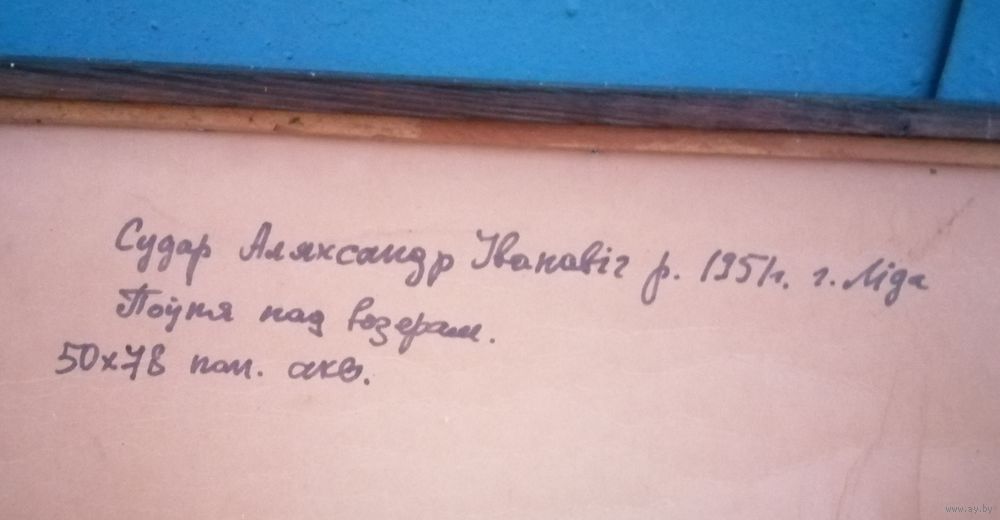 Судар Аляксандр Іванавіч р. 1951г. г. Ліда
Поўня над возерам.
50х78 пап. акв.
www.ay.by